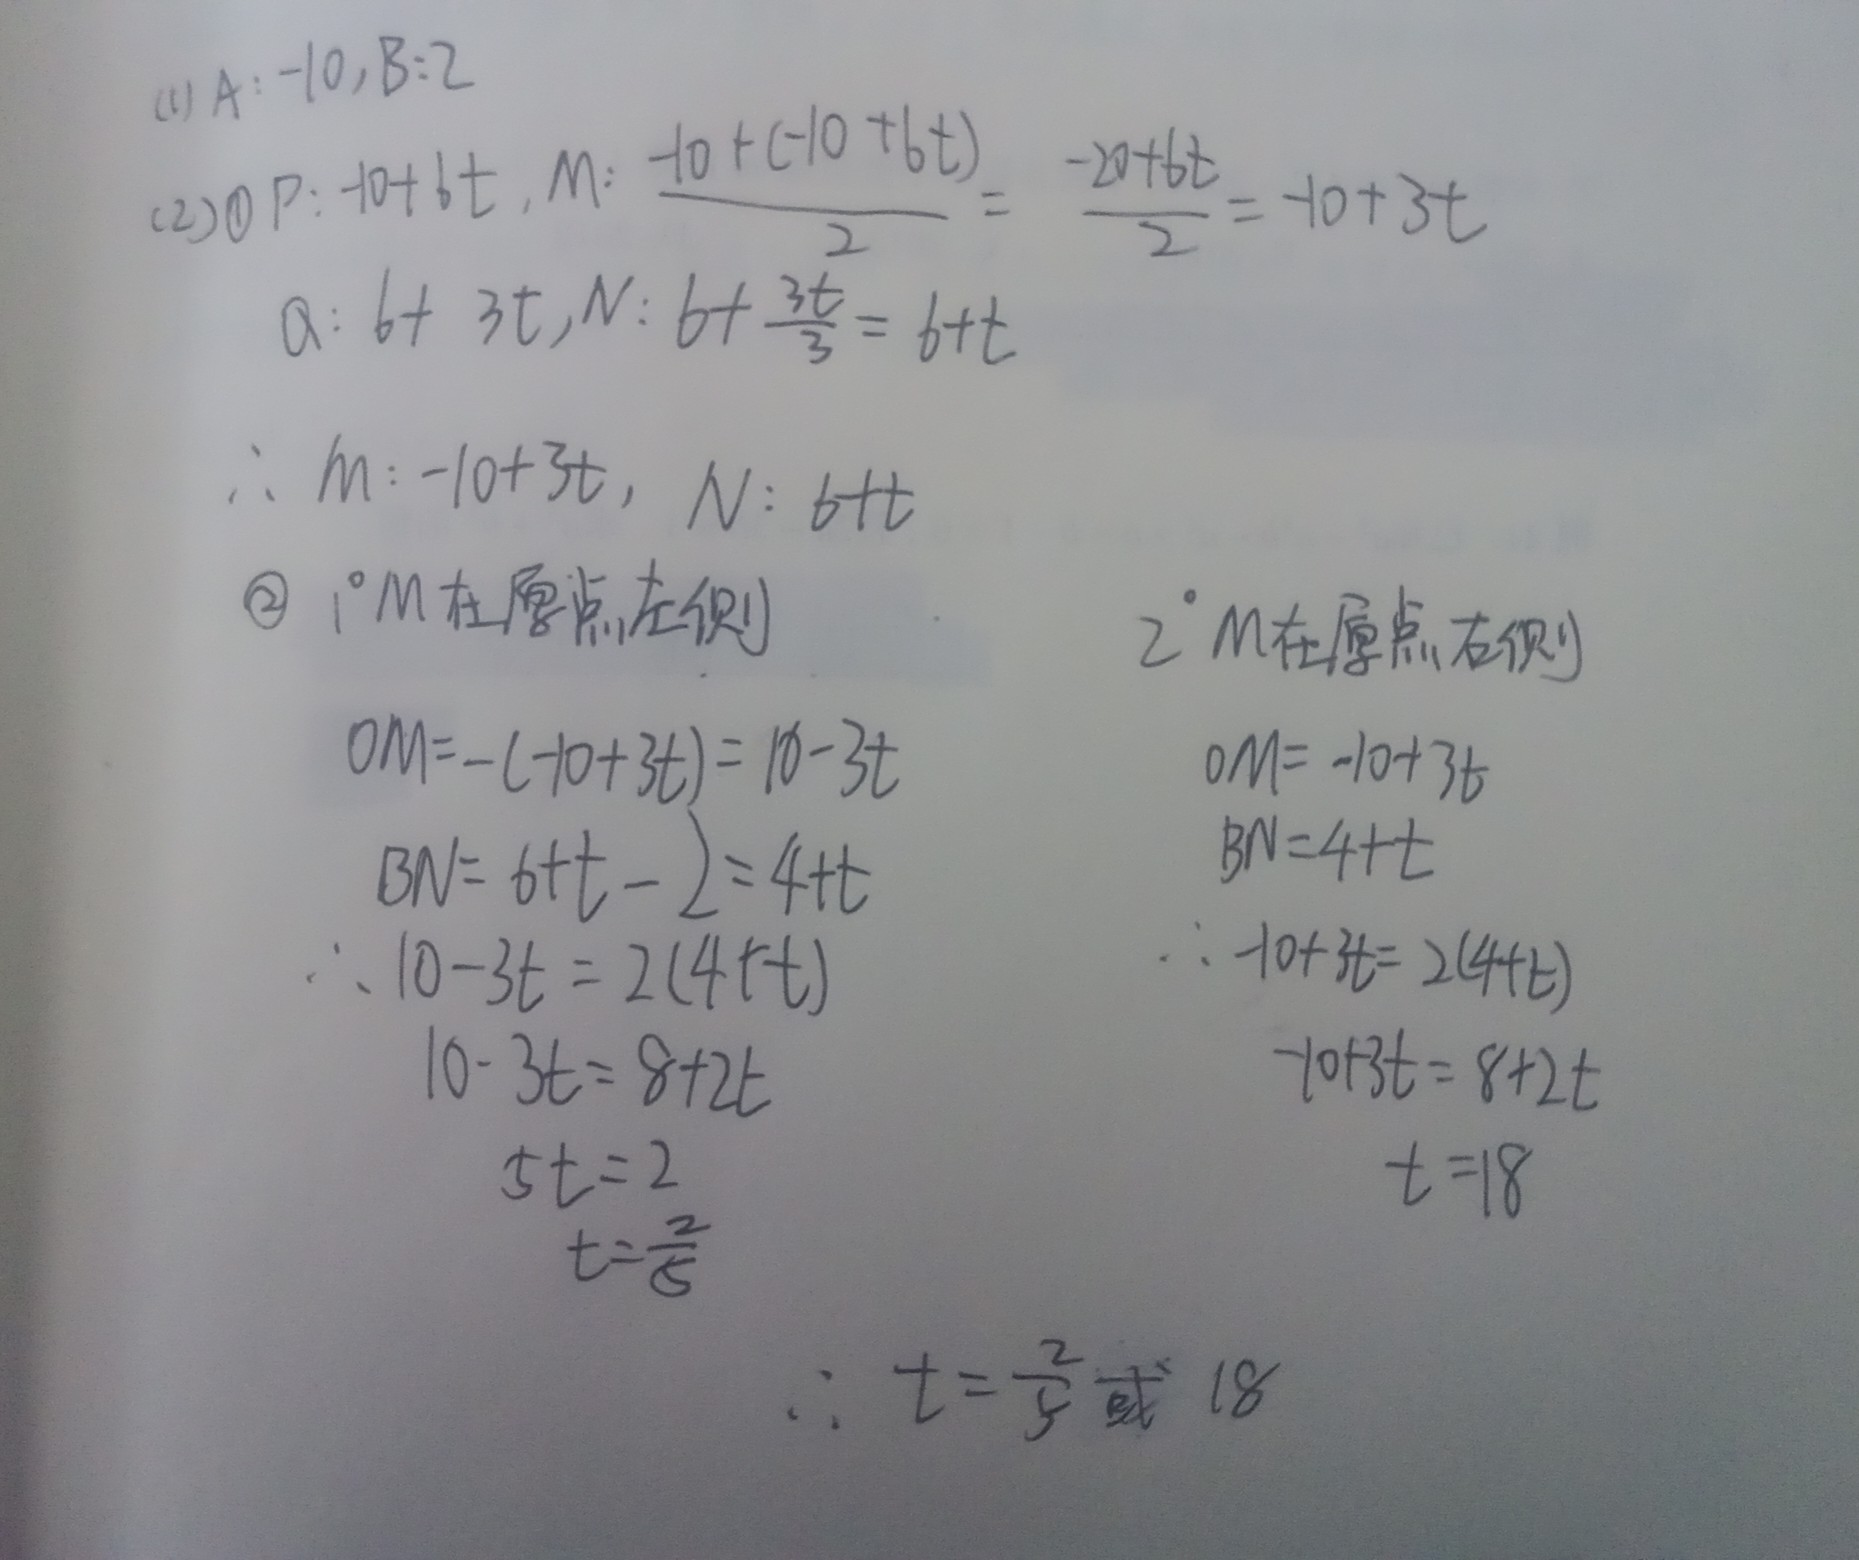 (1) A: -10, B: 2
(2) ① P: -10+6t, M: \frac{-10+(-10+6t)}{2} = \frac{-20+6t}{2} = -10+3t
Q: 6+ 3t, N: 6+\frac{3t}{3} = 6+t
∴ M: -10+3t, N: 6+t
② 1° M在原点左侧
OM=-(-10+3t)=10-3t
BN=6+t-2=4+t
∴ 10-3t=2(4+t)
10-3t=8+2t
5t=2
t=\frac{2}{5}
2° M在原点右侧
OM=-10+3t
BN=4+t
∴ -10+3t=2(4+t)
-10+3t=8+2t
t=18
∴ t=\frac{2}{5}或 18